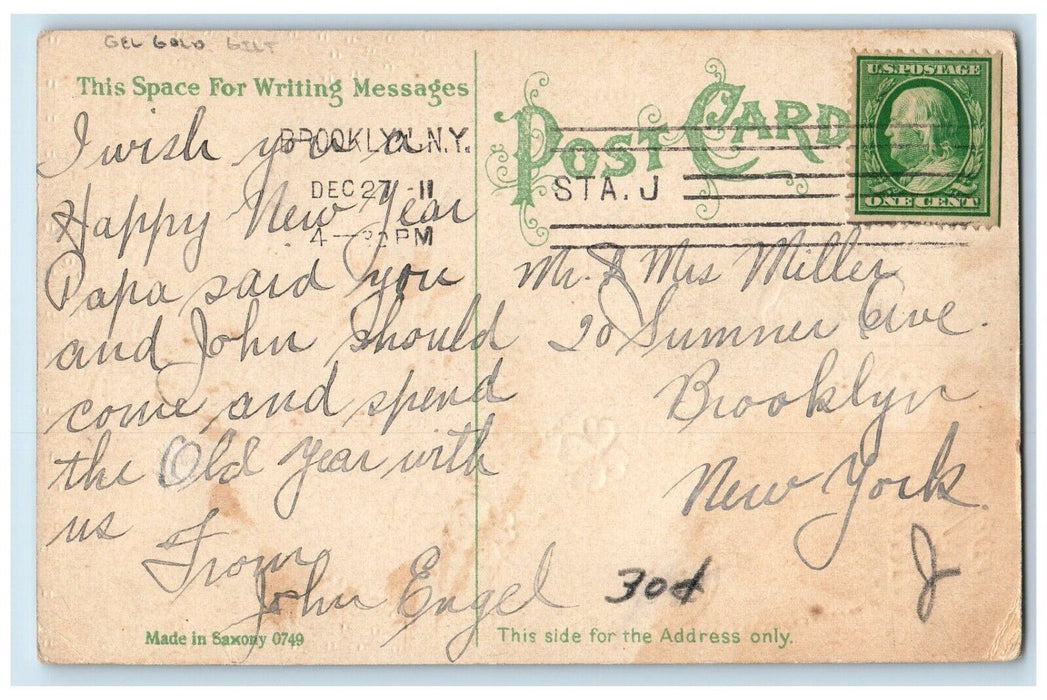 GEL GOLD GILT
This Space For Writing Messages
I wish you a
Happy New Year
Papa said you
and John should
come and spend
the Old Year with
us
From
John Engel
Made in Saxony 0749
BROOKLYN.N.Y.
DEC 27 -11
4- PM
STA. J
POST CARD
U.S. POSTAGE
ONE CENT
Mr. & Mrs Miller
20 Sumner Ave.
Brooklyn
New York
J
30¢
This side for the Address only.